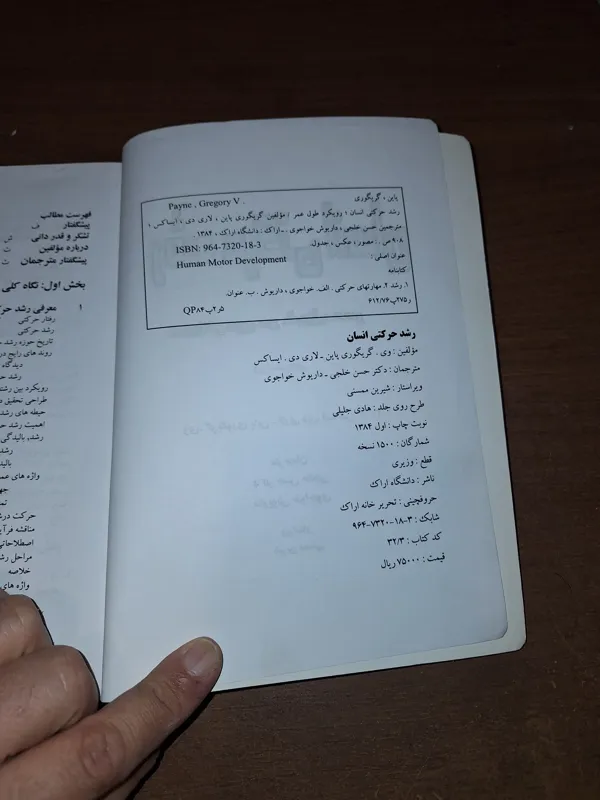 پاین ، گریگوری
Payne , Gregory V .
رشد حرکتی انسان : رویکرد طول عمر / مؤلفین گریگوری پاین ، لاری دی ، ایساکس ؛
مترجمین حسن خلجی ، داریوش خواجوی . ـ اراک : دانشگاه اراک ، ۱۳۸۴ .
۹۰۸ ص : مصور ، عکس ، جدول .
ISBN: 964-7320-18-3
عنوان اصلی :
Human Motor Development
کتابنامه
۱. رشد ۲. مهارتهای حرکتی . الف. خواجوی ، داریوش . ب. عنوان.
۶۱۲/۷۶ ر۲۷۵پ
QP۸۴ر۲پ۵
رشد حرکتی انسان
مؤلفین : وی . گریگوری پاین ـ لاری دی . ایساکس
مترجمان : دکتر حسن خلجی ـ داریوش خواجوی
ویراستار : شیرین ممسنی
طرح روی جلد : هادی جلیلی
نوبت چاپ : اول ۱۳۸۴
شمارگان : ۱۵۰۰ نسخه
قطع : وزیری
ناشر : دانشگاه اراک
حروفچینی : تحریر خانه اراک
شابک : ۳-۱۸-۷۳۲۰-۹۶۴
کد کتاب : ۳۲/۳
قیمت : ۷۵۰۰۰ ریال
فهرست مطالب
پیشگفتار ف
تشکر و قدر دانی ش
درباره مؤلفین ت
پیشگفتار مترجمان ث
بخش اول: نگاه کلی
۱ معرفی رشد حر
رفتار حرکتی
رشد حرکتی
تاریخ حوزه رشد
روند های رایج در
دیدگاه
رشد حر
رویکرد بین رشته
طراحی تحقیق د
اهمیت رشد حر
حیطه های رشد
رشد، بالیدگی
رشد
بالید
واژه های عم
جه
تما
حرکت درش
مناقشه فرآی
اصطلاحاتی
مراحل رش
خلاصه
واژه های